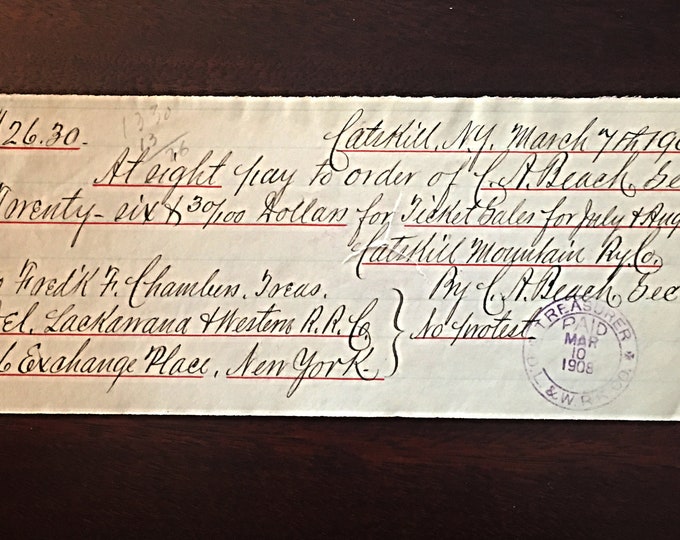 26.30.
1330
13
26
Catskill, N.Y. March 7th 190
At sight pay to order of C. A. Beach, Sec
Twenty-six & 30/100 Dollars for Ticket Sales for July & Aug
Catskill Mountain Ry Co.
Fredk F. Chambers, Treas. By C. A. Beach Sec
el. Lackawana & Western R.R. Co. } No protest
Exchange Place, New York.
TREASURER
PAID
MAR
10
1908
D. L. & W. R.R. CO.